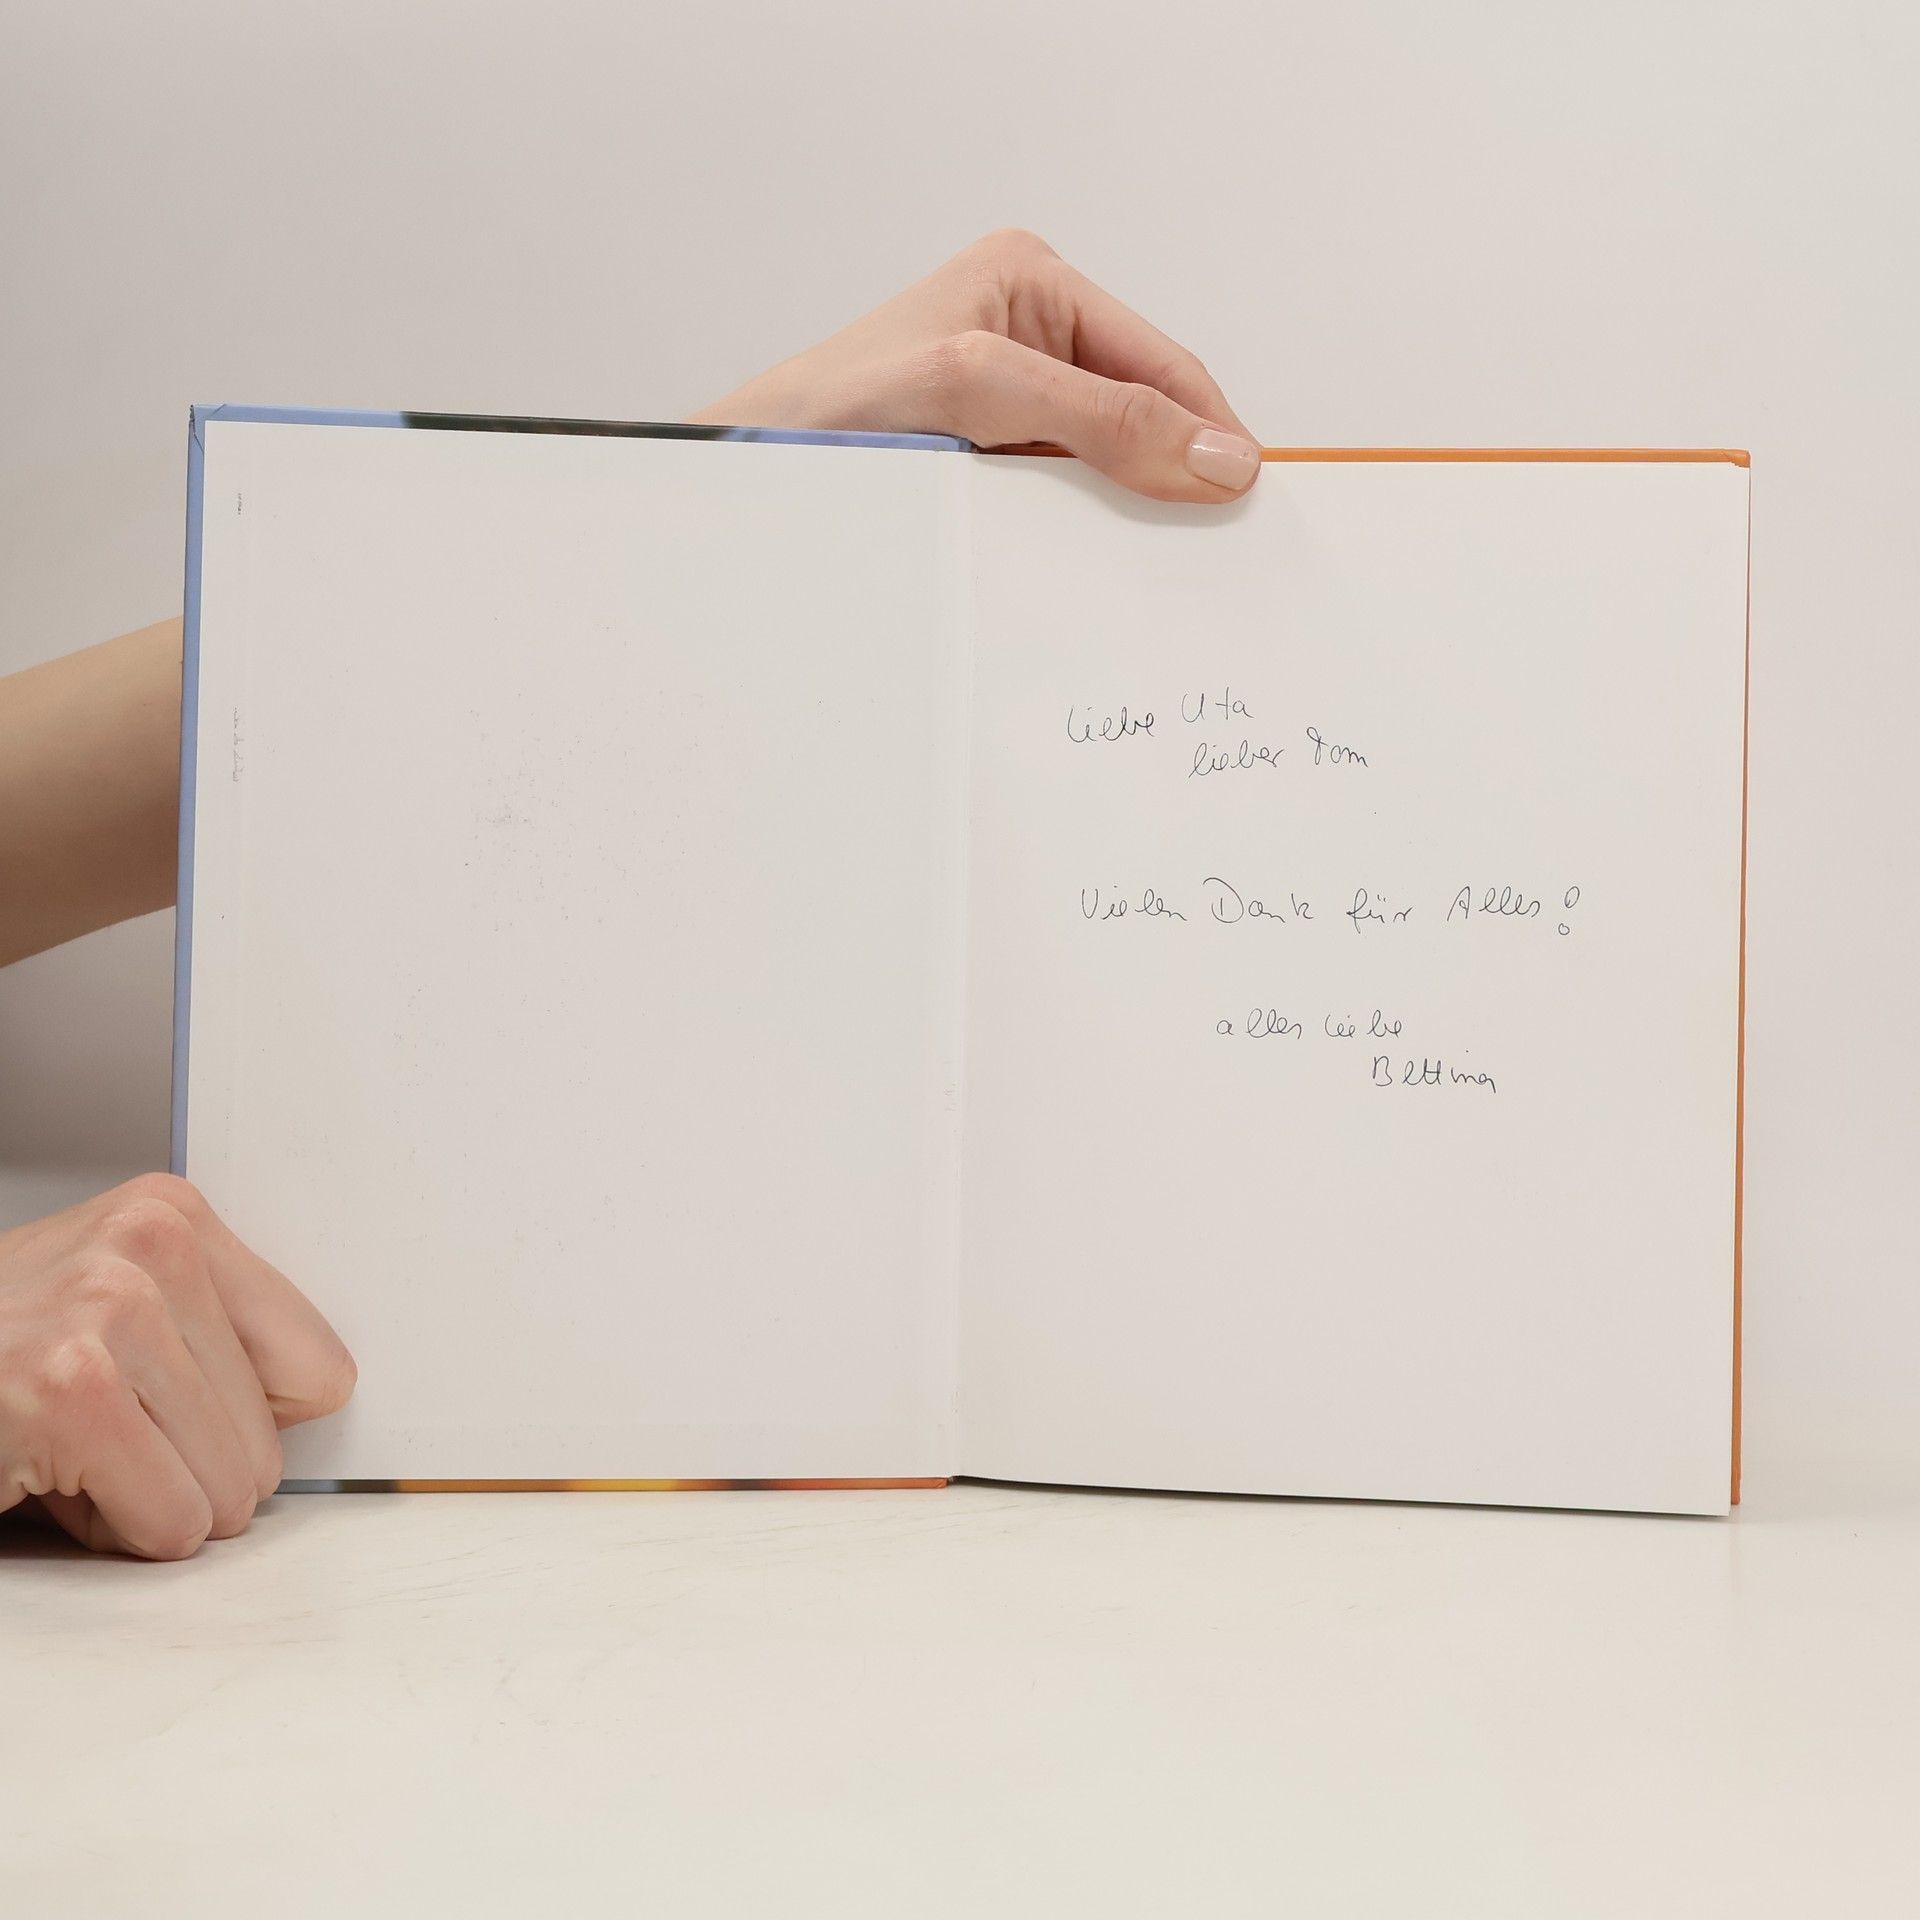 Liebe Uta
lieber Tom
Vielen Dank für Alles!
alles Liebe
Bettina